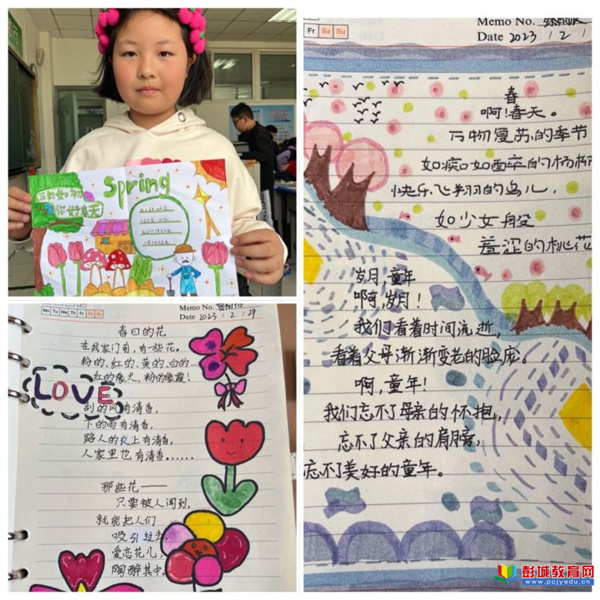 Spring
三月如初
你好春天
Memo No.
Mo Tu We Th Fr Sa Su
Date 2023 / 2 / 29
春日的花
在我家门前,有一些花。
粉的、红的、黄的、白的
红的像火,粉的像霞!
LOVE
刮的风有清香,
下的雨有清香,
路人的衣上有清香,
人家里也有清香……
那些花——
只要被人闻到,
就能把人们
吸引过去
爱恋花儿,
陶醉其中。
Memo No.
Fr Sa Su
Date 2023 / 2 /
春
啊!春天。
万物复苏的季节
如痴如醉的杨柳
快乐飞翔的鸟儿,
如少女般
羞涩的桃花
岁月,童年
啊,岁月!
我们看着时间流逝,
看着父母渐渐变老的脸庞。
啊,童年!
我们忘不了母亲的怀抱,
忘不了父亲的肩膀,
忘不了美好的童年。
彭城教育网
www.pcjyedu.cn